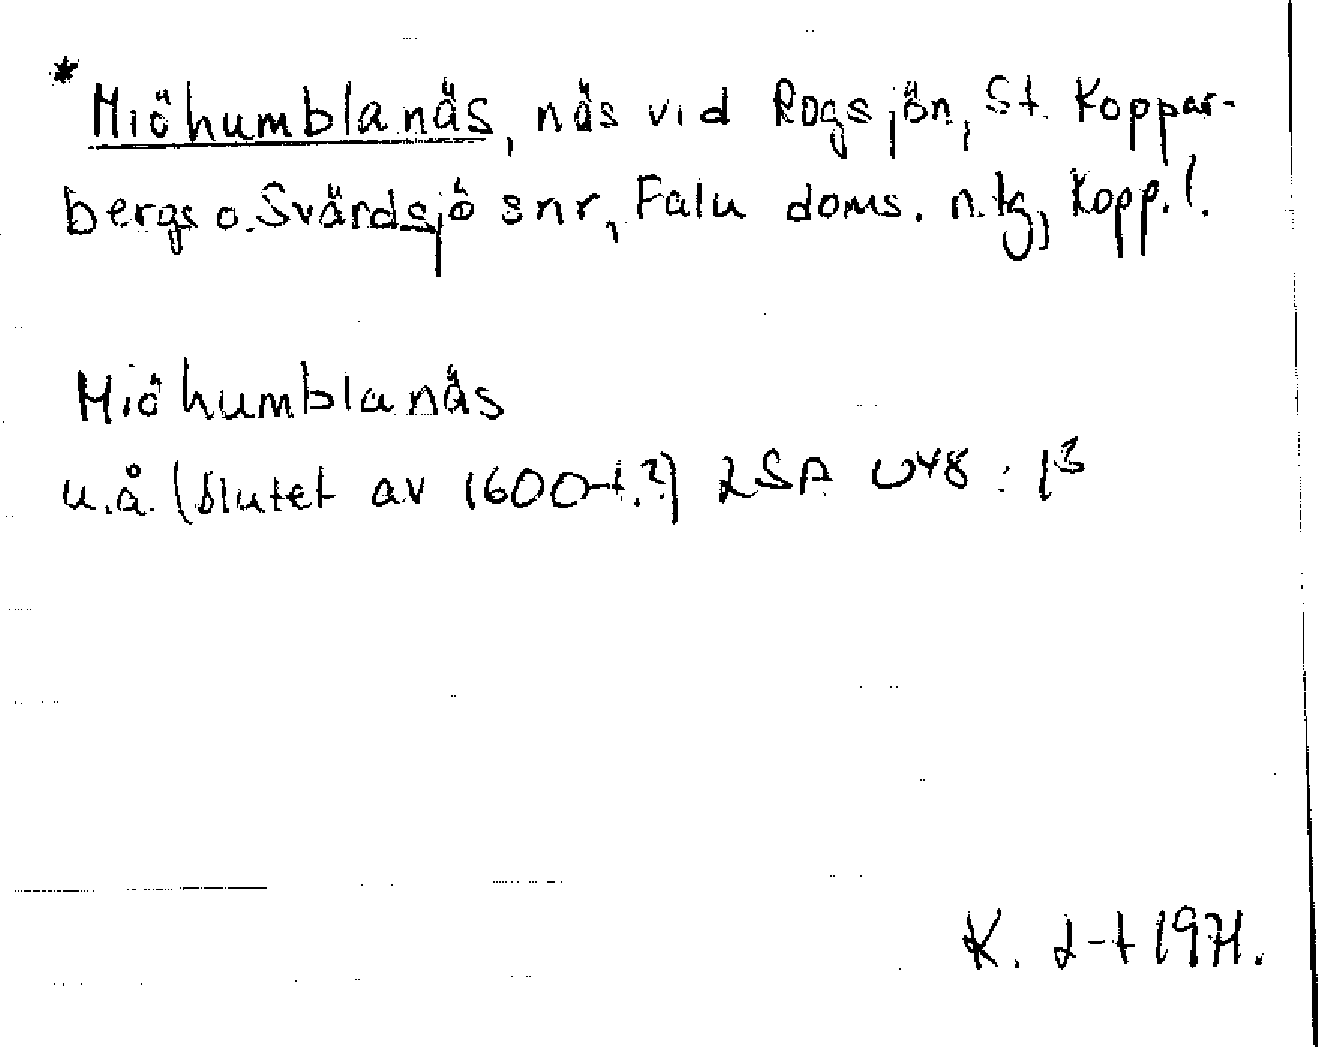 *Miöhumblanäs, näs vid Rogsjön, St. Koppar-
bergs o. Svärdsjö snr, Falu doms. n. tg, Kopp. l.
Miöhumblanäs
u.å. (slutet av 1600-t.?) LSA U48: 1³
K. 1971.